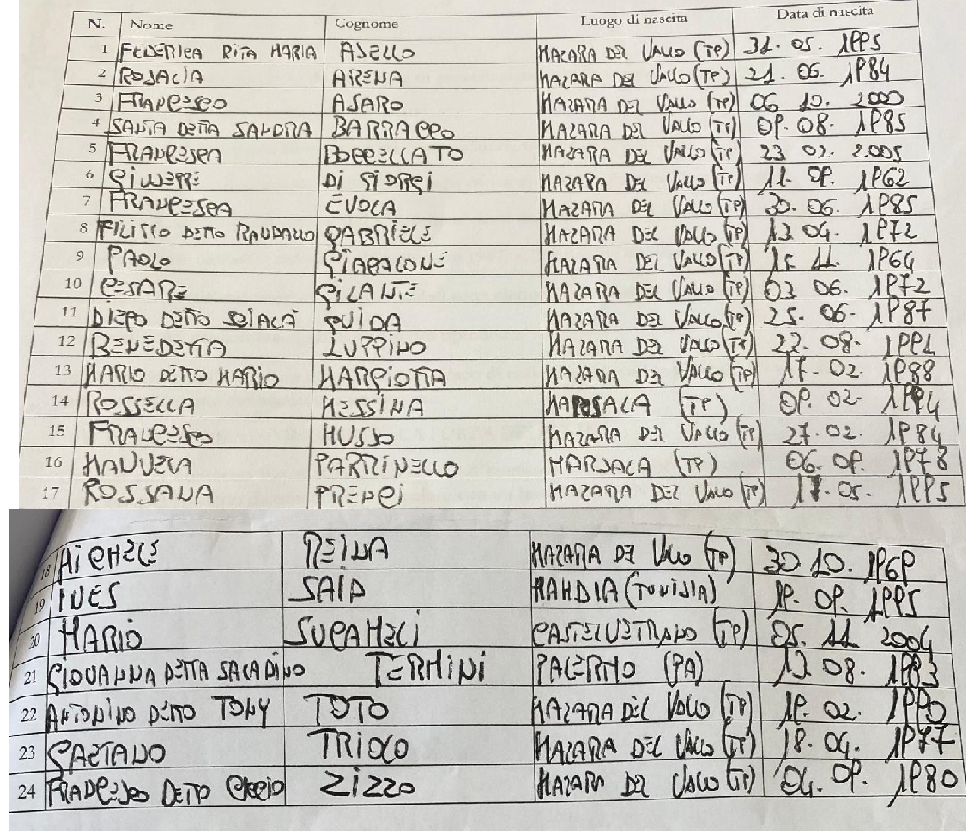 N. Nome Cognome Luogo di nascita Data di nascita
1 FEDERICA RITA MARIA ASELLO MAZARA DEL VALLO (TP) 31. 05. 1995
2 ROSALIA ARENA MAZARA DEL VALLO (TP) 21. 06. 1984
3 FRANCESCO ASARO MAZARA DEL VALLO (TP) 06 10. 2000
4 SANTA DETTA SANDRA BARRACCO MAZARA DEL VALLO (TP) 09. 08. 1985
5 FRANCESCA BOCCELLATO MAZARA DEL VALLO (TP) 23 2005
6 GIUSEPPE DI GIORGI MAZARA DEL VALLO (TP) 11. 09. 1962
7 FRANCESCA EVOLA MAZARA DEL VALLO (TP) 30. 06. 1985
8 FILIPPO DETTO RANDAZZO GABRIELE MAZARA DEL VALLO (TP) 04. 1972
9 PAOLO GIACALONE MAZARA DEL VALLO (TP) 15 11. 1964
10 CESARE GILANTE MAZARA DEL VALLO (TP) 03 06. 1972
11 DIEGO DETTO SCIACCA GUIDA MAZARA DEL VALLO (TP) 25. 06. 1987
12 BENEDETTA LUPPINO MAZARA DEL VALLO (TP) 22. 08. 1991
13 MARIO DETTO MARIO MARGIOTTA MAZARA DEL VALLO (TP) 17. 02. 1988
14 ROSSELLA MESSINA MARSALA (TP) 09. 02. 1994
15 FRANCESCO MUSSO MAZARA DEL VALLO (TP) 27. 02. 1984
16 MANUELA PARRINELLO MARSALA (TP) 06. 09. 1978
17 ROSSANA PREMCI MAZARA DEL VALLO (TP) 17. 05. 1995
18 MICHELE REINA MAZARA DEL VALLO (TP) 30 10. 1969
19 INES SAID MAHDIA (TUNISIA) 19. 09. 1995
20 MARIO SUCAMELI CASTELVETRANO (TP) 05. 11 2004
21 GIOVANNA DETTA SALADINO TERMINI PALERMO (PA) 13 08. 1983
22 ANTONINO DETTO TONY TOTO MAZARA DEL VALLO (TP) 19. 02. 1990
23 GAETANO TRIOLO MAZARA DEL VALLO (TP) 18. 04. 1977
24 FRANCESCO DETTO CICCIO ZIZZO MAZARA DEL VALLO (TP) 04. 09. 1980